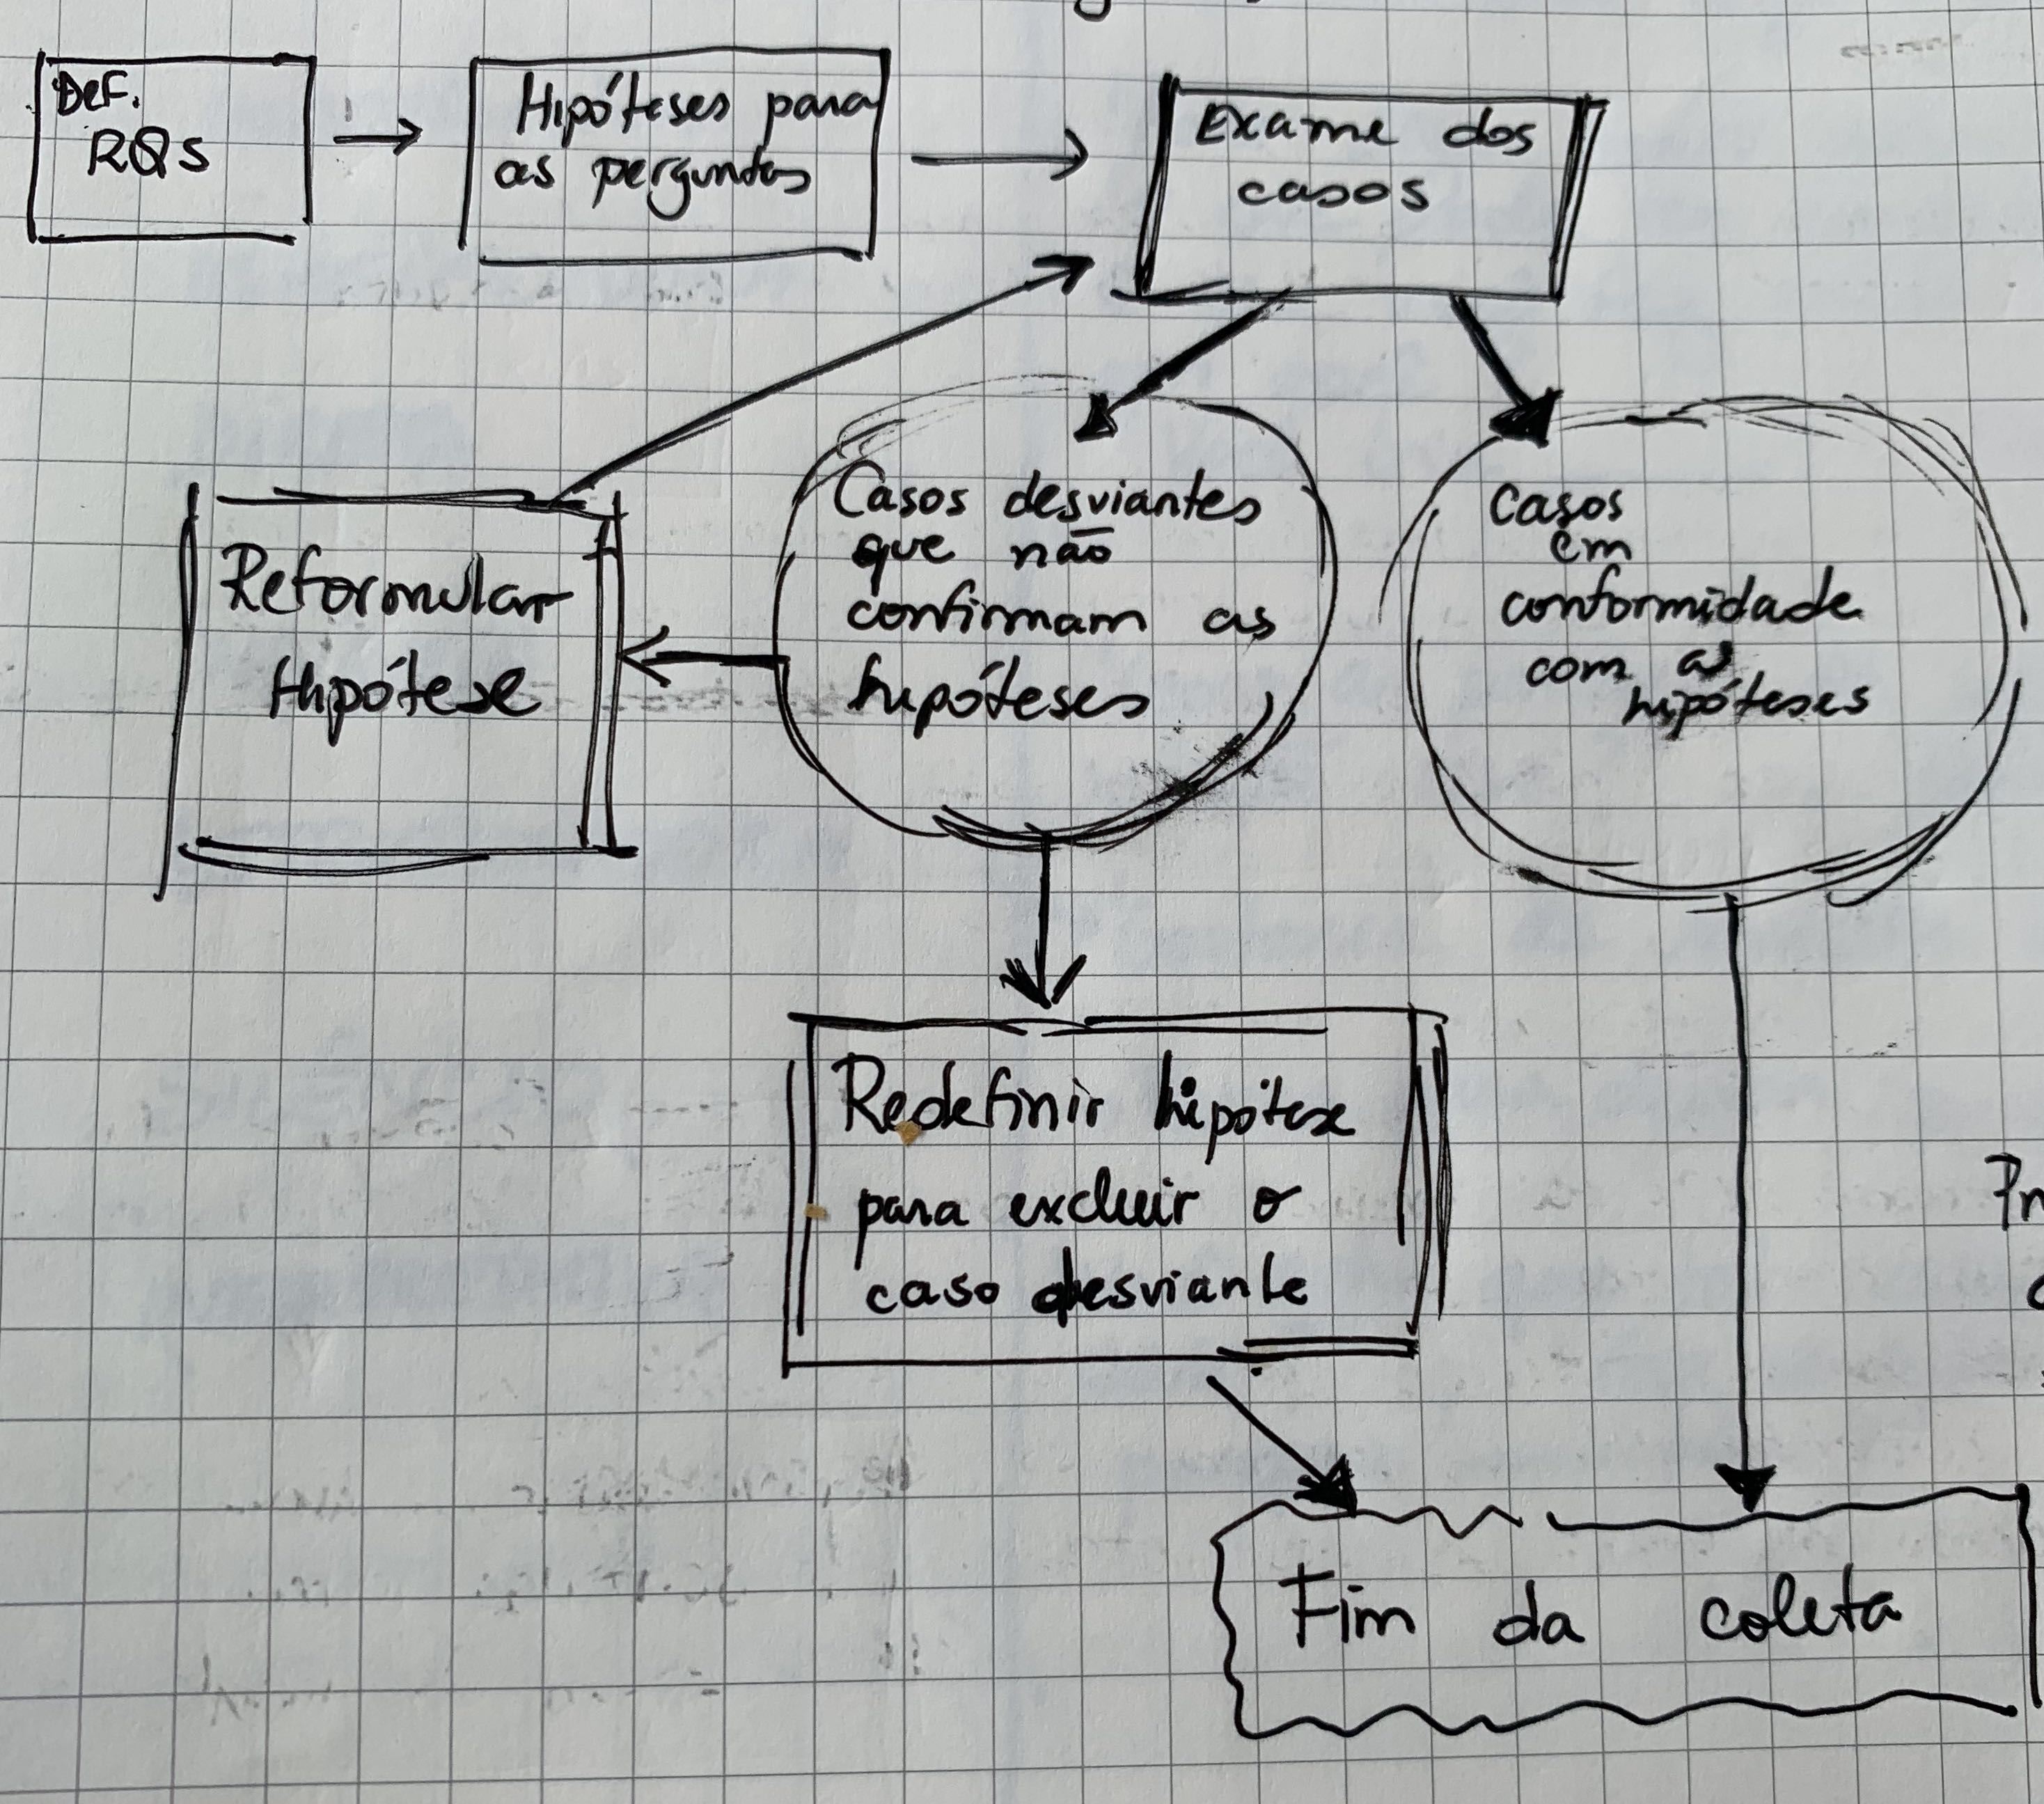 Def.
RQs
Hipóteses para
as perguntas
Exame dos
casos
Casos desviantes
que não
confirmam as
hipóteses
Casos
em
conformidade
com as
hipóteses
Reformular
Hipótese
Redefinir hipótese
para excluir o
caso desviante
Fim da coleta